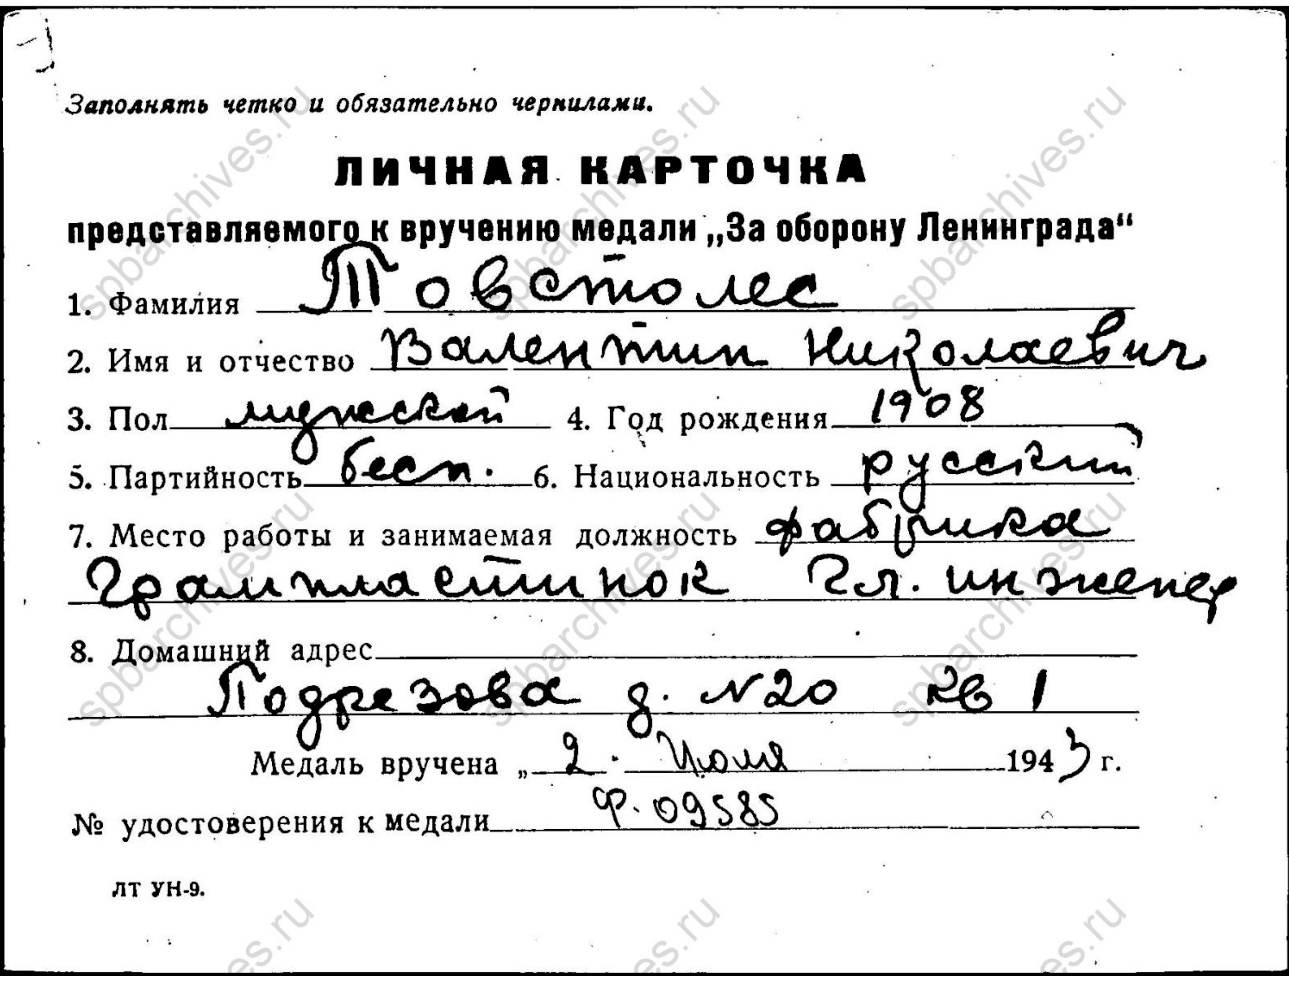 Заполнять четко и обязательно чернилами.
ЛИЧНАЯ КАРТОЧКА
представляемого к вручению медали „За оборону Ленинграда“
1. Фамилия Товстолес
2. Имя и отчество Валентин Николаевич
3. Пол мужской 4. Год рождения 1908
5. Партийность бесп. 6. Национальность русский
7. Место работы и занимаемая должность фабрика
Грампластинок Гл. инженер
8. Домашний адрес
Подрезова д. N20 кв 1
Медаль вручена „2. Июля 1943 г.
№ удостоверения к медали Ф. 09585
ЛТ УН-9.
spbarchives.ru